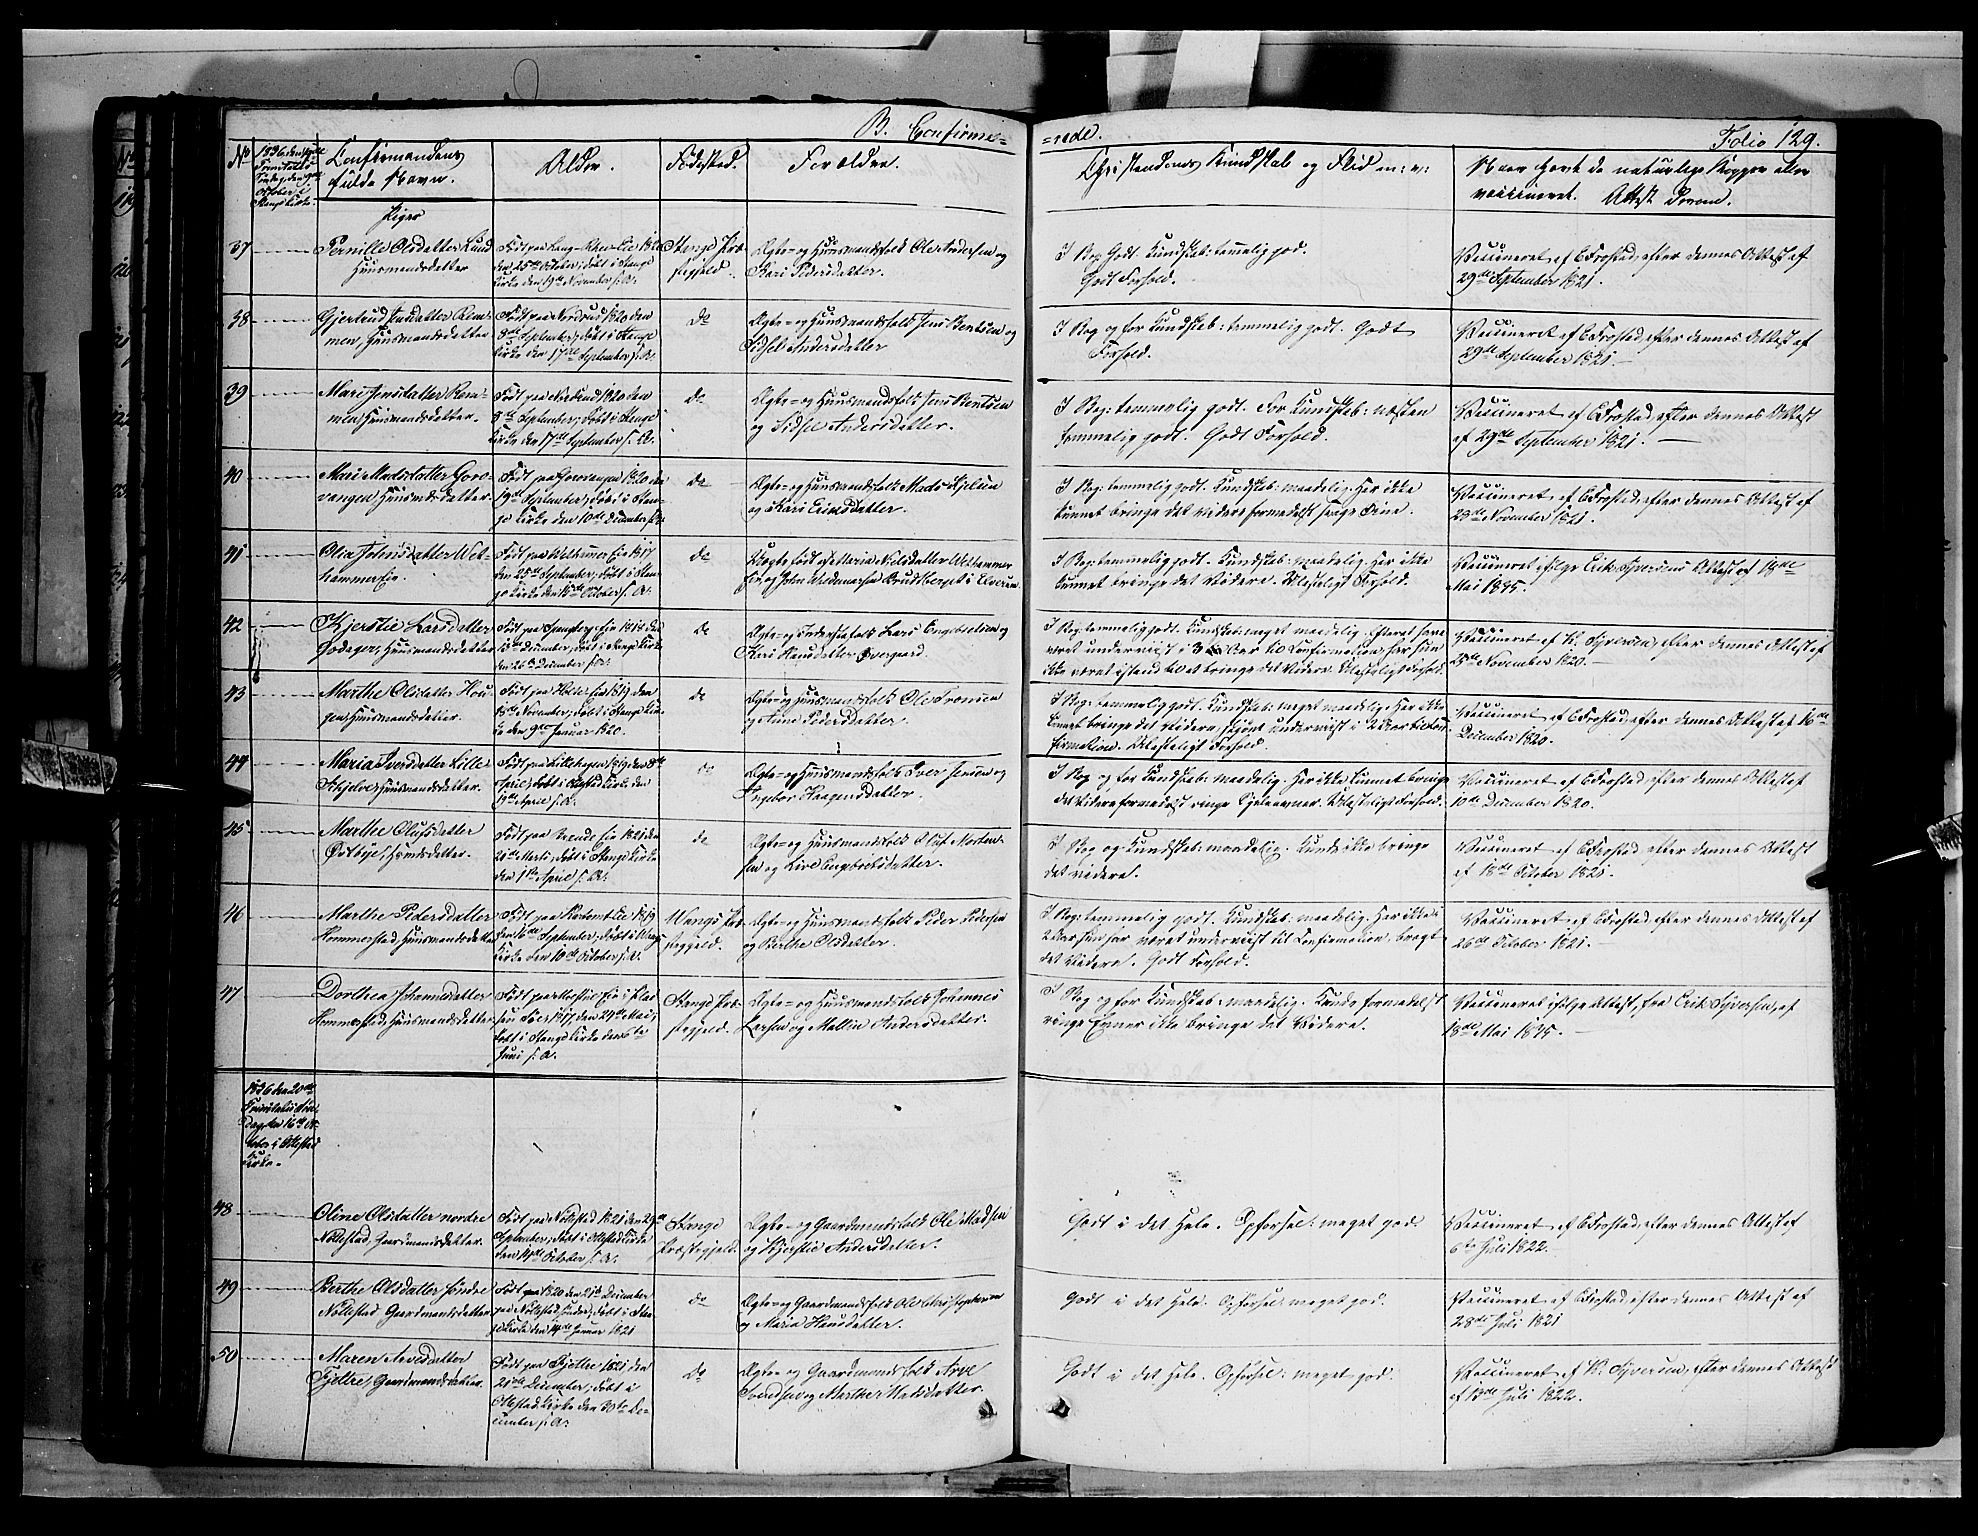 B. Confirme=
=rede.
Folio 129.
No
1836, den
Confirmandens
fulde Navn.
Alder.
Fødested.
Forældre.
Christendoms Kundskab og Flid m: v:
Naar havt de naturlige Kopper eller
vaccineret. Attest derom.
October i
Stange Kirke.
Piger
37
Pernille Olsdatter Lund
Huusmandsdatter
den 25de October, døbt i Stange
Kirke den 19de November s. A:
Stange Præ-
stegjeld.
Ægte- og Huusmandsfolk Ole Andersen og
Kari Pedersdatter.
I Bog: Godt. Kundskab: temmelig god.
Godt Forhold.
Vaccineret af CFrostad, efter dennes Attest af
29de September 1821.
38
Gjertrud Jensdatter Rem-
men, Huusmandsdatter
Født paa Nordrud 1820 den
8de September, døbt i Stange
Kirke den 17de September s. A:
do
Ægte- og Huusmandsfolk Jens Bentsen og
Sidsel Andersdatter
I Bog og for Kundskab: temmelig godt. Godt
Forhold.
Vaccineret af CFrostad, efter dennes Attest af
29de September 1821.
39
Mari Jensdatter Rem-
men, Huusmandsdatter.
Født paa Nordrud 1820 den
8de September, døbt i Stange
Kirke den 17de September s. A:
do
Ægte- og Huusmandsfolk Jens Bentsen
og Sidsel Andersdatter.
I Bog: temmelig godt. For Kundskab: næsten
temmelig godt. Godt Forhold.
Vaccineret af CFrostad, efter dennes Attest
af 29de September 1821.
40
Mari Madsdatter Goro-
vangen, Huusmdsdatter
Født paa Gorovangen 1820 den
19de September, døbt i Stan-
ge Kirke den 10de December s. A:
do
Ægte- og Huusmandsfolk Mads
og Kari Eriksdatter.
I Bog: temmelig godt. Kundskab: maadelig. Har ikke
kunnet bringe det videre formedelst svage Øine.
Vaccineret af CFrostad, efter dennes Attest af
23de November 1821.
41
Olia Johnsdatter Vet-
hammereie.
Født paa Vethammer Eie 1817
den 25de September, døbt i Stan-
ge Kirke den October s. A:
do
Uægte født af Maria Nielsdatter Vethammer
Eie og John i Elverum
I Bog: temmelig godt. Kundskab: maadelig. Har ikke
kunnet bringe det Videre. Ulasteligt Forhold.
Vaccineret ifølge Erik Syversens Attest af 18de
Mai 1835.
42
Kjerstie Larsdatter
Godager, Huusmandsdatter
December, døbt i Stange Kirke
den 26de December s. A:
do
Ægte- og Inderstfolk Lars Engebretsen og
Kari Hansdatter Overgaard.
I Bog: temmelig godt. Kundskab: meget maadelig. Efterat have
været underviist i 3 Aar til Confirmation, har hun
ikke været istand til at bringe det Videre. Ulasteligt Forhold.
Vaccineret af K. Syversen, efter dennes Attest af
25de November 1820.
43
Marthe Olsdatter Hou-
gen, Huusmandsdatter.
Født paa Eie 1819 den
November, døbt i Stange Kir-
ke den 9de Januar 1820.
do
Ægte- og Huusmandsfolk Ole Tronsen
og Anne Pedersdatter.
I Bog: temmelig godt. Kundskab: meget maadelig. Har ikke
kunnet bringe det Videre, skjønt underviist i 2 Aar til Con-
firmation. Ulasteligt Forhold.
Vaccineret af CFrostad, efter dennes Attest af 16de
December 1820.
44
Maria Iversdatter Lille
Huusmandsdatter.
April, døbt i Ottestad Kirke den
19de April s. A:
do
Ægte- og Huusmandsfolk Iver Jensen og
Ingebor Haagensdatter
I Bog og for Kundskab: maadelig. Har ikke kunnet bringe
det Videre formedelst ringe Sjeleevner. Ulasteligt Forhold.
Vaccineret af CFrostad, efter dennes Attest af
10de December 1820.
45
Marthe Olufsdatter
Østbye, Huusmdsdatter.
Født paa Eie 1821 den
21de Marts, døbt i Stange Kirke
den 1ste April s. A:
do
Ægte- og Huusmandsfolk Oluf Morten-
sen og Live Engebretsdatter.
I Bog og Kundskab: maadelig. Kunde ikke bringe
det videre.
Vaccineret af CFrostad, efter dennes Attest
af 18de October 1821.
46
Marthe Pedersdatter
Hommerstad, Huusmandsdatter
Eie 1819
den 16de September, døbt i Vangs
Kirke den 10de October s. A:
Vangs Præ-
stegjeld.
Ægte- og Huusmandsfolk Peder Pedersen
og Berthe Olsdatter.
I Bog: temmelig godt. Kundskab: maadelig. Har ikke i
2 Aar hun har været underviist til Confirmation, bragt
det Videre. Godt Forhold.
Vaccineret af CFrostad, efter dennes Attest af
26de October 1821.
47
Dorthea Johannesdatter
Hommerstad, Huusmandsdatter
1817, den 29de Mai,
døbt i Stange Kirke den 6te
Juni s. A:
Stange Præ-
stegjeld.
Ægte- og Huusmandsfolk Johannes
Larsen og Mallin Andersdatter.
I Bog og for Kundskab: maadelig. Kunde formedelst
ringe Evner ikke bringe det Videre.
Vaccineret ifølge Attest, fra Erik Syversen, af
18de Mai 1835.
1836 den 20de
Trinitatis Søn-
dag, den 16de Oc-
tober i Ottestad
Kirke.
48
Oline Olsdatter nordre
Nøttestad, Gaardmandsdatter.
Født paa Nøttestad 1821 den 29de
September, døbt i Ottestad Kirke
den 14de October s. A:
Stange
Præstegjeld.
Ægte- og Gaardmandsfolk Ole Madsen
og Kjerstie Andersdatter.
Godt i det Hele. Opførsel: meget god.
Vaccineret af CFrostad, efter dennes Attest af
6te Juli 1822.
49
Berthe Olsdatter søndre
Nøttestad Gaardmandsdatter
Født paa 1820 den 21de December
paa Nøttestad søndre, døbt i Stan-
ge Kirke den 14de Januar 1821
do
Ægte- og Gaardmandsfolk Ole Christophersen
og Maria Hansdatter.
Godt i det Hele. Opførsel: meget god.
Vaccineret af CFrostad, efter dennes Attest af
28de Juli 1821
50
Maren Arvesdatter
Fjeltre, Gaardmandsdatter.
Født paa Fjeltre 1821 den
21de December, døbt i
Ottestad Kirke den 30te De-
cember s. A:
do
Ægte- og Gaardmandsfolk Arve
og Marthe Madsdatter.
Godt i det Hele. Opførsel: meget god.
Vaccineret af K. Syversen, efter dennes Attest
af 13de Juli 1822.